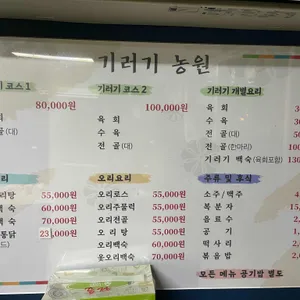 기러기 농원
기 코스 1
80,000원
(대)
기러기 코스 2
100,000원
육 회
수 육
전 골(대)
기러기 개별요리
육 회
수 육
전 골(대)
전 골(한마리)
기러기 백숙(육회포함)
리
리탕 55,000원
백숙 60,000원
백숙 70,000원
통닭 23,000원
드)
오리요리
오리로스 55,000원
오리주물럭 55,000원
오리전골 55,000원
오 리 탕 55,000원
오리백숙 60,000원
옻오리백숙 70,000원
주류 및 후식
소주/맥주
복 분 자
음 료 수
공 기
떡 사 리
볶 음 밥
모든 메뉴 공기밥 별도